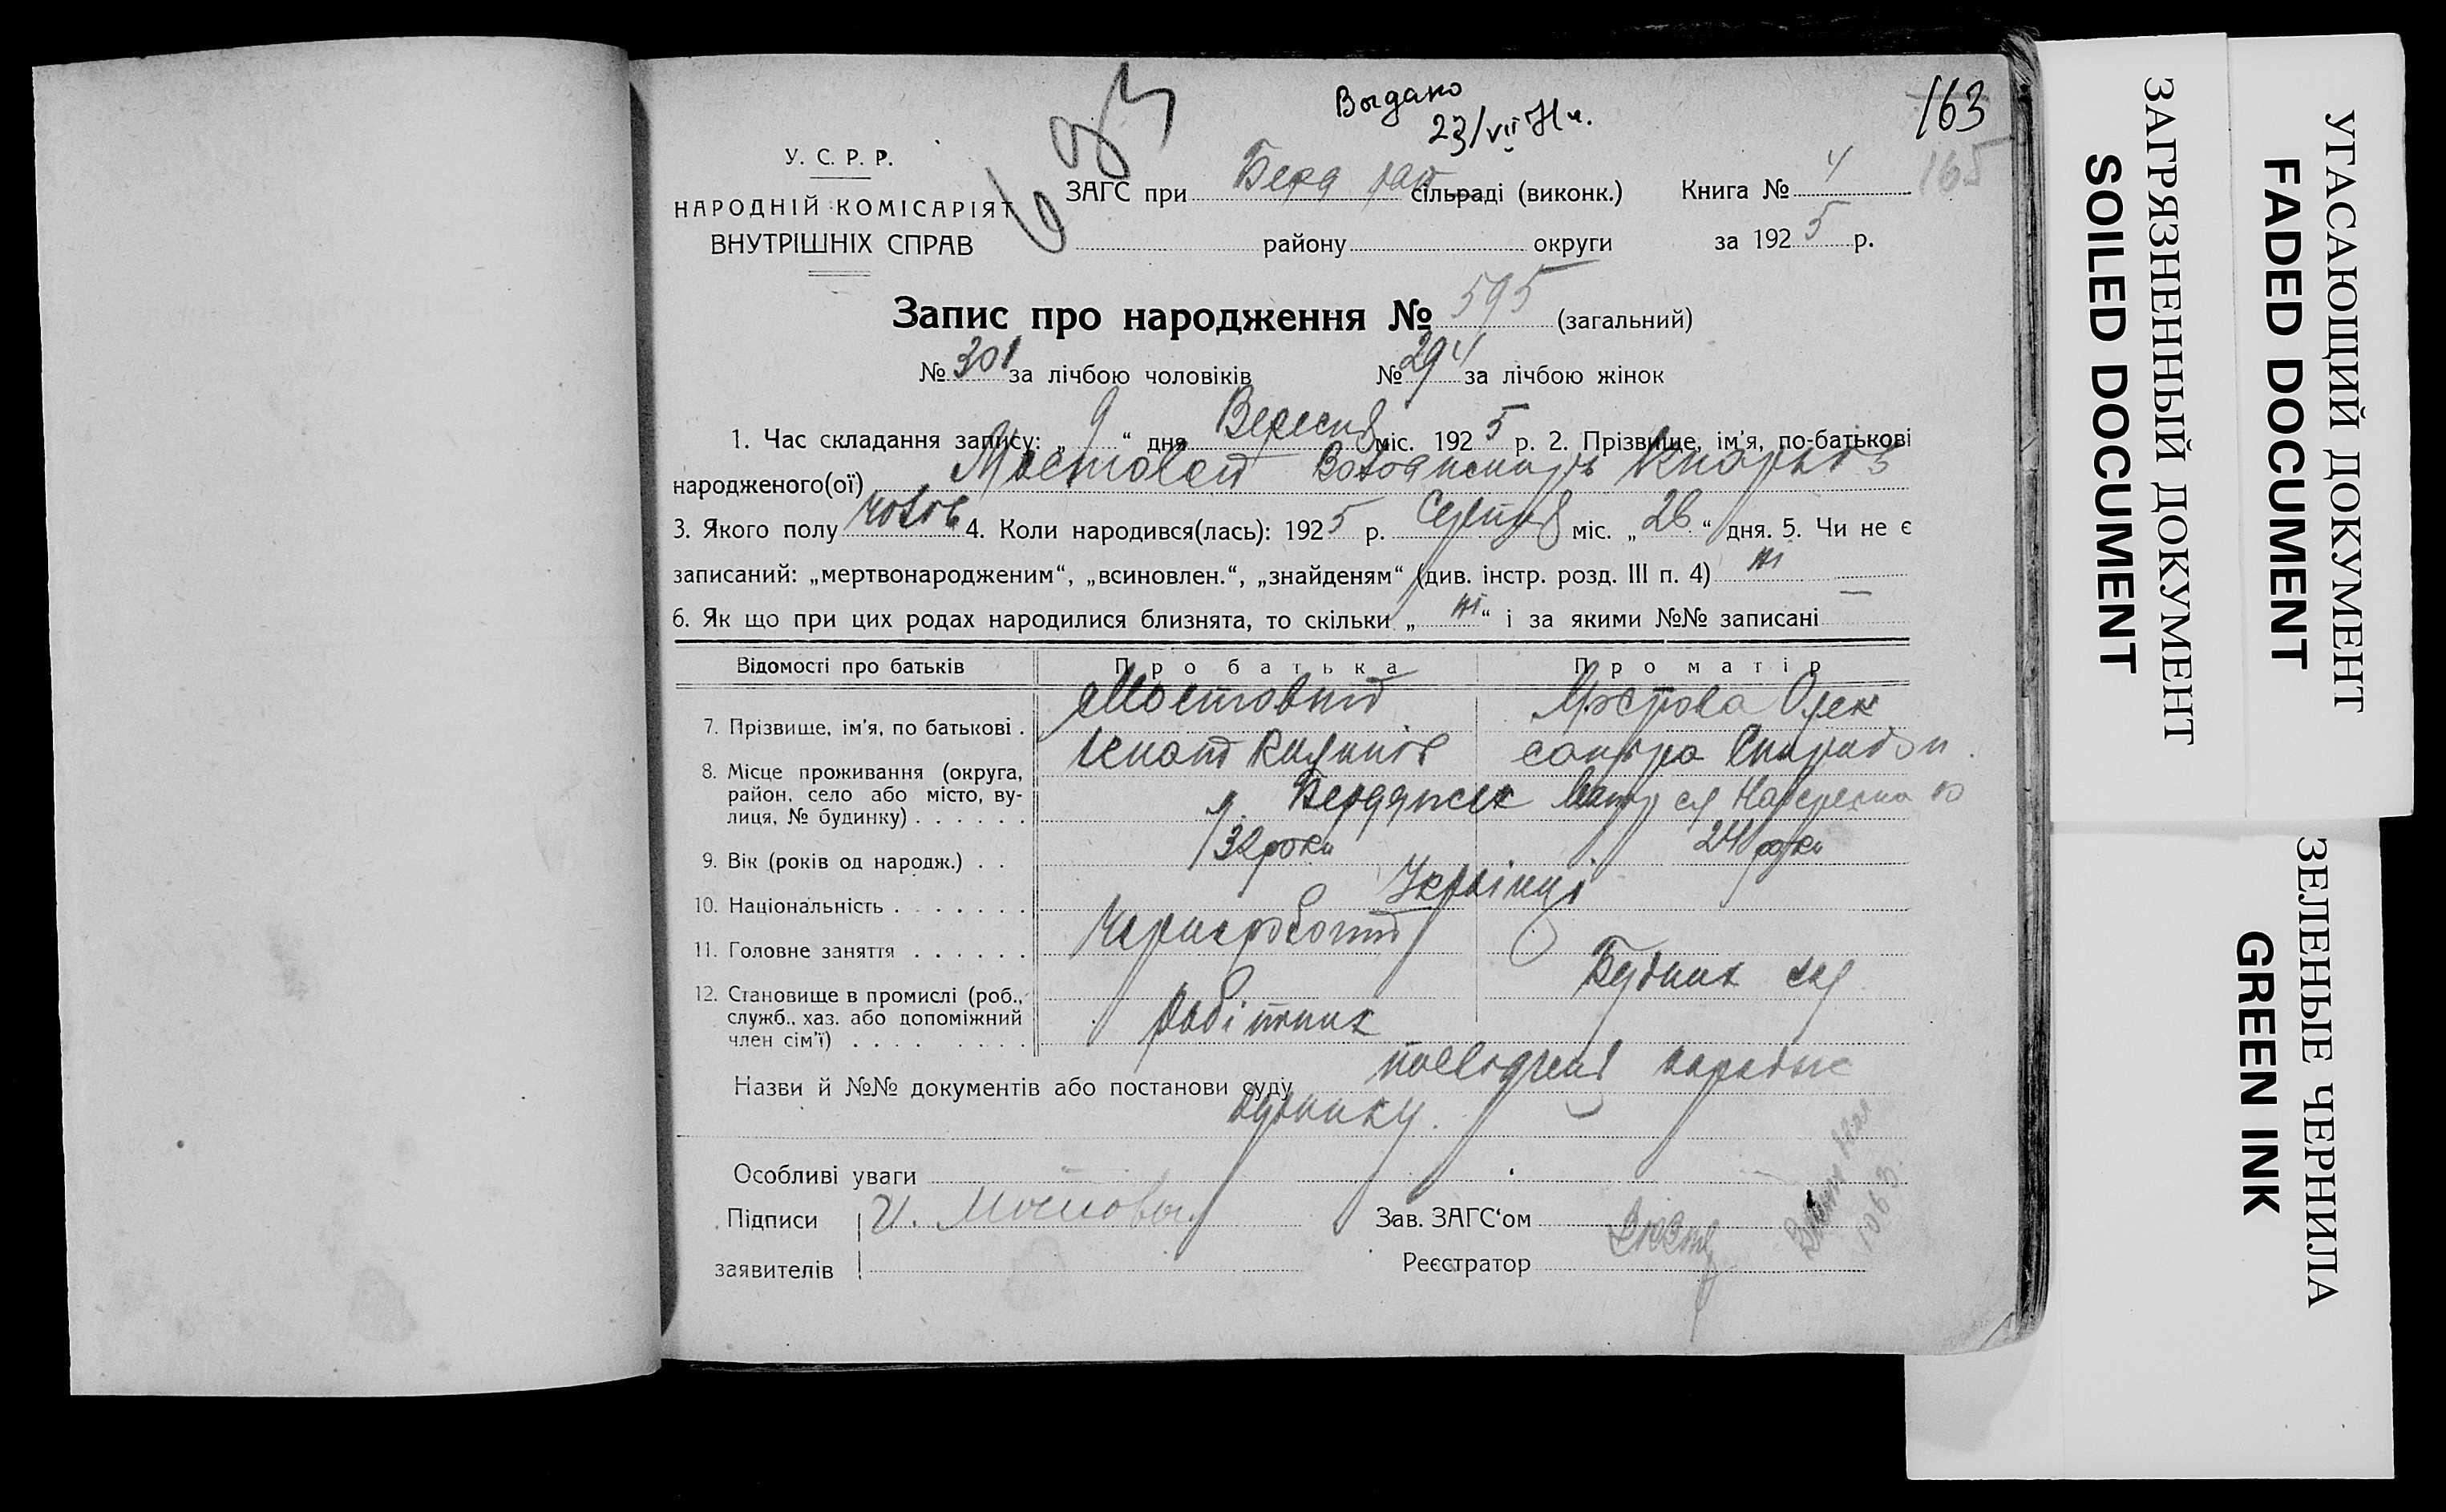 Выдано
23/VII 71 г.
163
165
683
У. С. Р. Р.
НАРОДНІЙ КОМІСАРІЯТ
ВНУТРІШНІХ СПРАВ
ЗАГС при Берд рай сільраді (виконк.)
району округи
Книга № 4
за 1925 р.
Запис про народження № 595 (загальний)
№ 301 за лічбою чоловіків № 294 за лічбою жінок
1. Час складання запису: „ 9 “ дня Вересня міс. 1925 р. 2. Прізвище, ім'я, по-батькові
народженого(ої) Мостовой Володимир
3. Якого полу чолов 4. Коли народився(лась): 1925 р. Серпня міс. „ 26 “ дня. 5. Чи не є
записаний: „мертвонародженим“, „всиновлен.“, „знайденям“ (див. інстр. розд. III п. 4) ні
6. Як що при цих родах народилися близнята, то скільки „ ні “ і за якими №№ записані —
Відомості про батьків Про батька Про матір
7. Прізвище, ім'я, по батькові . Мостовий Олек
сандра
8. Місце проживання (округа,
район, село або місто, ву-
лиця, № будинку) . . . . . . Бердянск
9. Вік (років од народж.) . . 32 роки 24 роки
10. Національність . . . . . . . Українці
11. Головне заняття . . . . . . Черноробочий
12. Становище в промислі (роб.,
служб., хаз. або допоміжний
член сім'ї) . . . . . . . . робітник
Назви й №№ документів або постанови суду посвідченя
будинку.
Особливі уваги
Підписи И. Мостовой Зав. ЗАГС‘ом
заявителів Реєстратор
ЗАГРЯЗНЕННЫЙ ДОКУМЕНТ
SOILED DOCUMENT
УГАСАЮЩИЙ ДОКУМЕНТ
FADED DOCUMENT
ЗЕЛЕНЫЕ ЧЕРНИЛА
GREEN INK